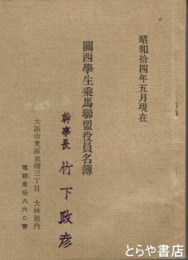 昭和拾四年五月現在
關西學生乘馬聯盟役員名簿
幹事長 竹下政彦
大阪市東區京橋三丁目 大林組内
電話東 八六〇番
とらや書店